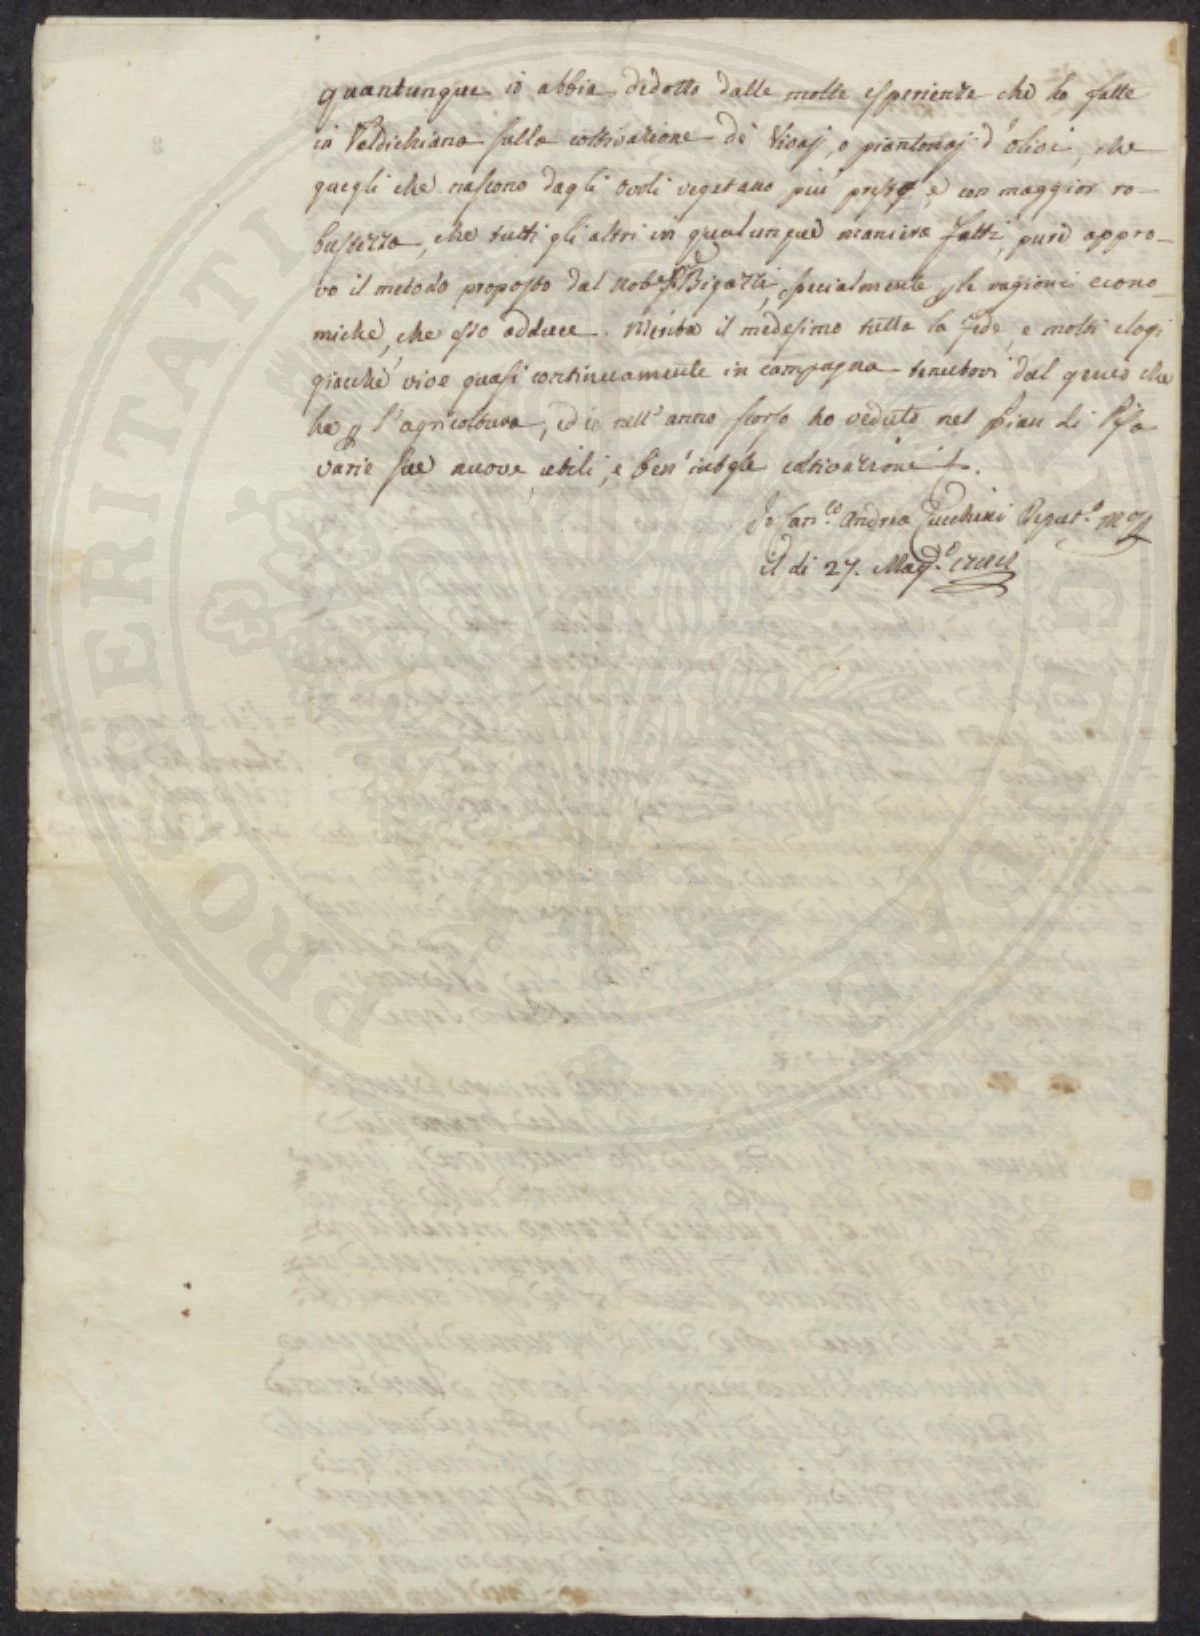 quantunque io abbia dedotto dalle molte esperienze che ho fatte
in Valdichiana sulla coltivazione de' Vivaj, o piantonaj d'olivi, che
quegli che nascono dagli ovoli vegetano più presto, e con maggior ro-
bustezza, che tutti gli altri in qualunque maniera fatti, pure appro-
vo il metodo proposto dal Nob. Bigazzi, specialmente p le ragioni econo-
miche, che esso adduce. Merita il medesimo tutta la fede, e molti elogi
giacchè vive quasi continuamente in campagna tenutovi dal genio che
ha p l'agricoltura, ed io nell'anno scorso ho veduto nel Pian di Pisa
varie sue nuove, utili, e ben' intese coltivazioni.
Io Can.co Andrea Zucchini Deput.o
il di 27. Mag.o
PROSPERITATI AUGENDAE